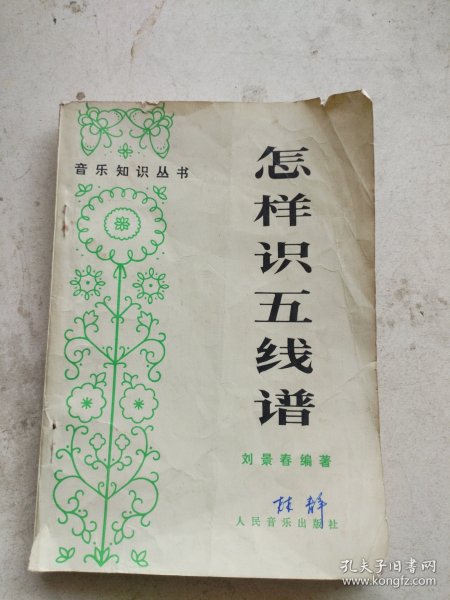 音乐知识丛书
怎样识五线谱
刘景春编著
静
人民音乐出版社
孔夫子旧书网
www.kongfz.com